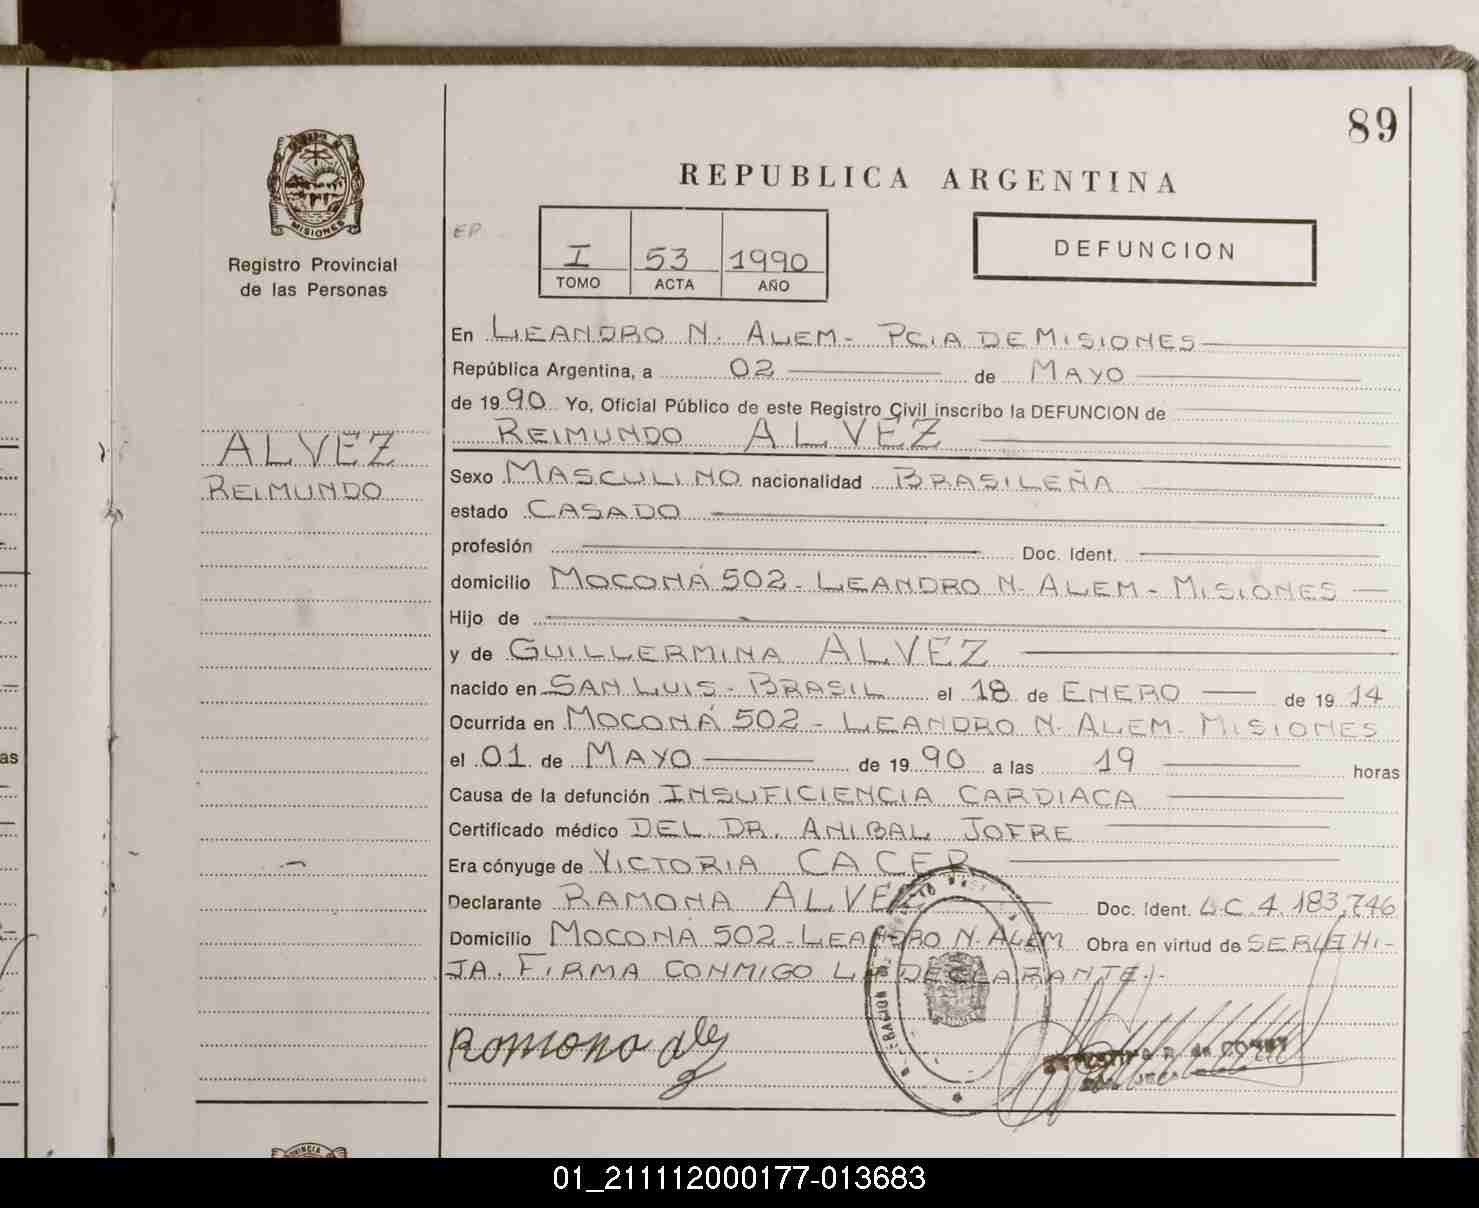 89
REPUBLICA ARGENTINA
MISIONES
Registro Provincial
de las Personas
EP
I 53 1990
TOMO ACTA AÑO
DEFUNCION
En LEANDRO N. ALEM - PCIA DE MISIONES
República Argentina, a 02 de MAYO
de 1990 Yo, Oficial Público de este Registro Civil inscribo la DEFUNCION de
REIMUNDO ALVEZ
ALVEZ
REIMUNDO
Sexo MASCULINO nacionalidad BRASILEÑA
estado CASADO
profesión Doc. Ident.
domicilio MOCONÁ 502 - LEANDRO N. ALEM - MISIONES
Hijo de
y de GUILLERMINA ALVEZ
nacido en SAN LUIS - BRASIL el 18 de ENERO de 1914
Ocurrida en MOCONÁ 502 - LEANDRO N. ALEM - MISIONES
el 01 de MAYO de 1990 a las 19 horas
Causa de la defunción INSUFICIENCIA CARDIACA
Certificado médico DEL DR. ANIBAL JOFRE
Era cónyuge de VICTORIA CACER
Declarante RAMONA ALVEZ Doc. Ident. L.C. 4.183.746
Domicilio MOCONÁ 502 - LEANDRO N. ALEM Obra en virtud de SER LA HI-
JA. FIRMA CONMIGO LA DECLARANTE.-
Ramona
as
01_211112000177-013683